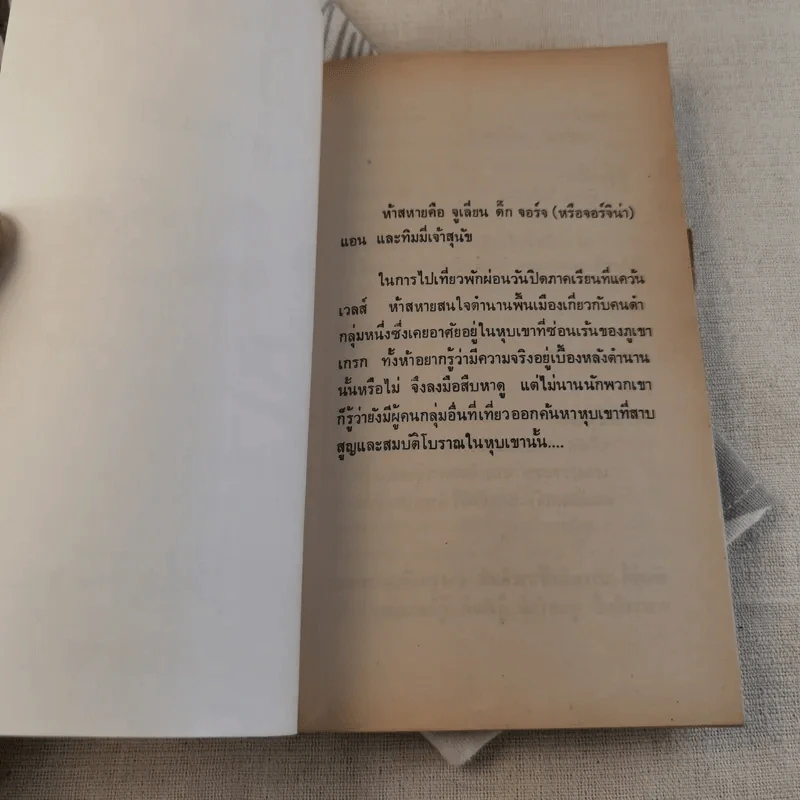 ห้าสหายคือ จูเลี่ยน ดิ๊ก จอร์จ (หรือจอร์จิน่า)
แอน และทิมมี่เจ้าสุนัข
ในการไปเที่ยวพักผ่อนวันปิดภาคเรียนที่แคว้น
เวลส์ ห้าสหายสนใจตำนานพื้นเมืองเกี่ยวกับคนดำ
กลุ่มหนึ่งซึ่งเคยอาศัยอยู่ในหุบเขาที่ซ่อนเร้นของภูเขา
เกรก ทั้งห้าอยากรู้ว่ามีความจริงอยู่เบื้องหลังตำนาน
นั้นหรือไม่ จึงลงมือสืบหาดู แต่ไม่นานนักพวกเขา
ก็รู้ว่ายังมีผู้คนกลุ่มอื่นที่เที่ยวออกค้นหาหุบเขาที่สาบ
สูญและสมบัติโบราณในหุบเขานั้น....